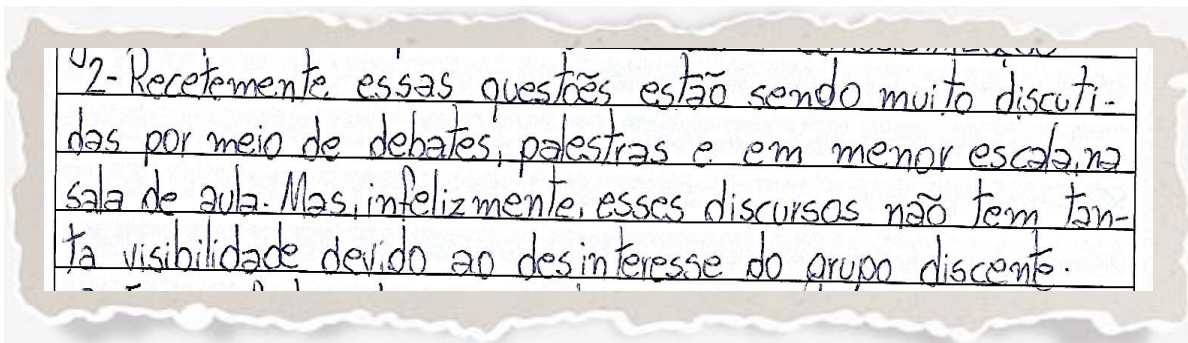 2- Recetemente essas questões estão sendo muito discuti-
das por meio de debates, palestras e em menor escala, na
sala de aula. Mas, infelizmente, esses discursos não tem tan-
ta visibilidade devido ao desinteresse do grupo discente.